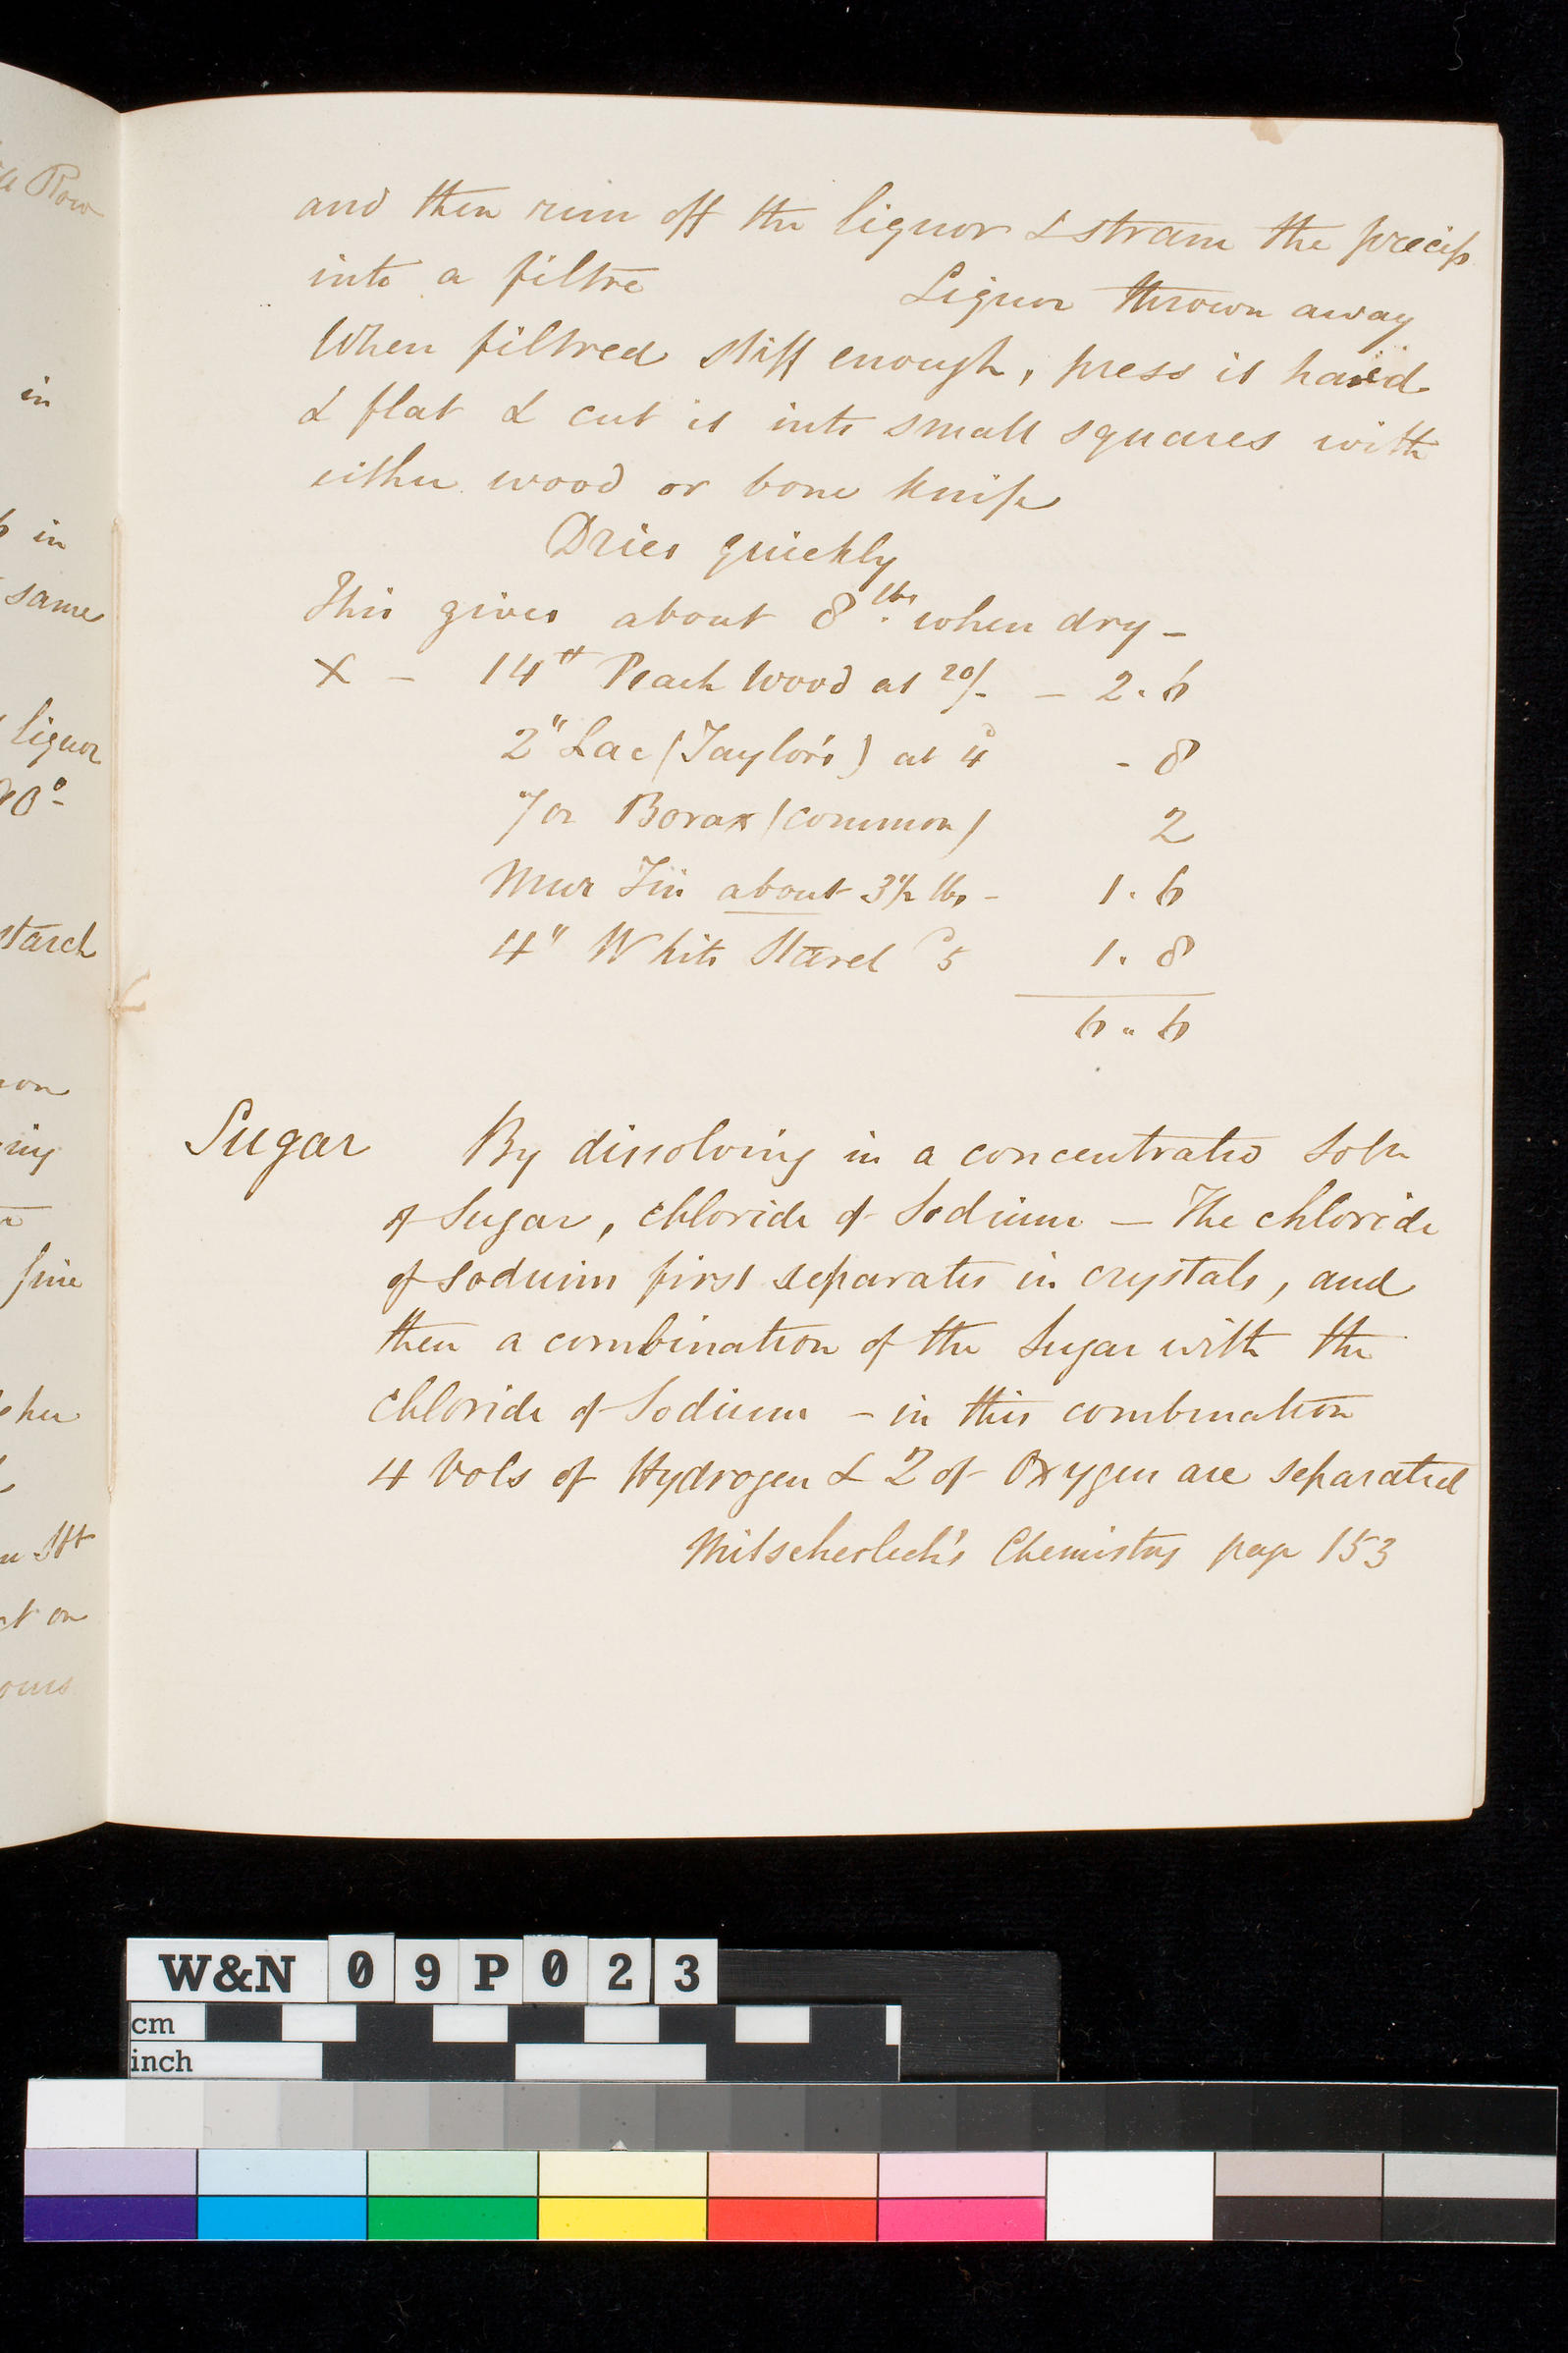 and then run off the liquor & strain the precip
into a filtre Liquor thrown away
When filtred stiff enough, press it hard
& flat & cut it into small squares with
either wood or bone knife
Dries quickly
This gives about 8 lbs. when dry -
X - 14 " Peach Wood at 20/- - 2.6
2" Lac (Taylor's) at 4d - 8
7 oz Borax (common) 2
Mur Tin about 3½ lbs - 1.6
4" White Starch 5d 1.8
6 " 6
Sugar By dissolving in a concentrated Soln
of Sugar, chloride of Sodium - The chloride
of sodium first separates in crystals, and
then a combination of the Sugar with the
chloride of Sodium - in this combination
4 Vols of Hydrogen & 2 of Oxygen are separated
Mitscherlich's Chemistry page 153
Row
in
in
same
liquor
starch
fine
W&N 09P023
cm
inch